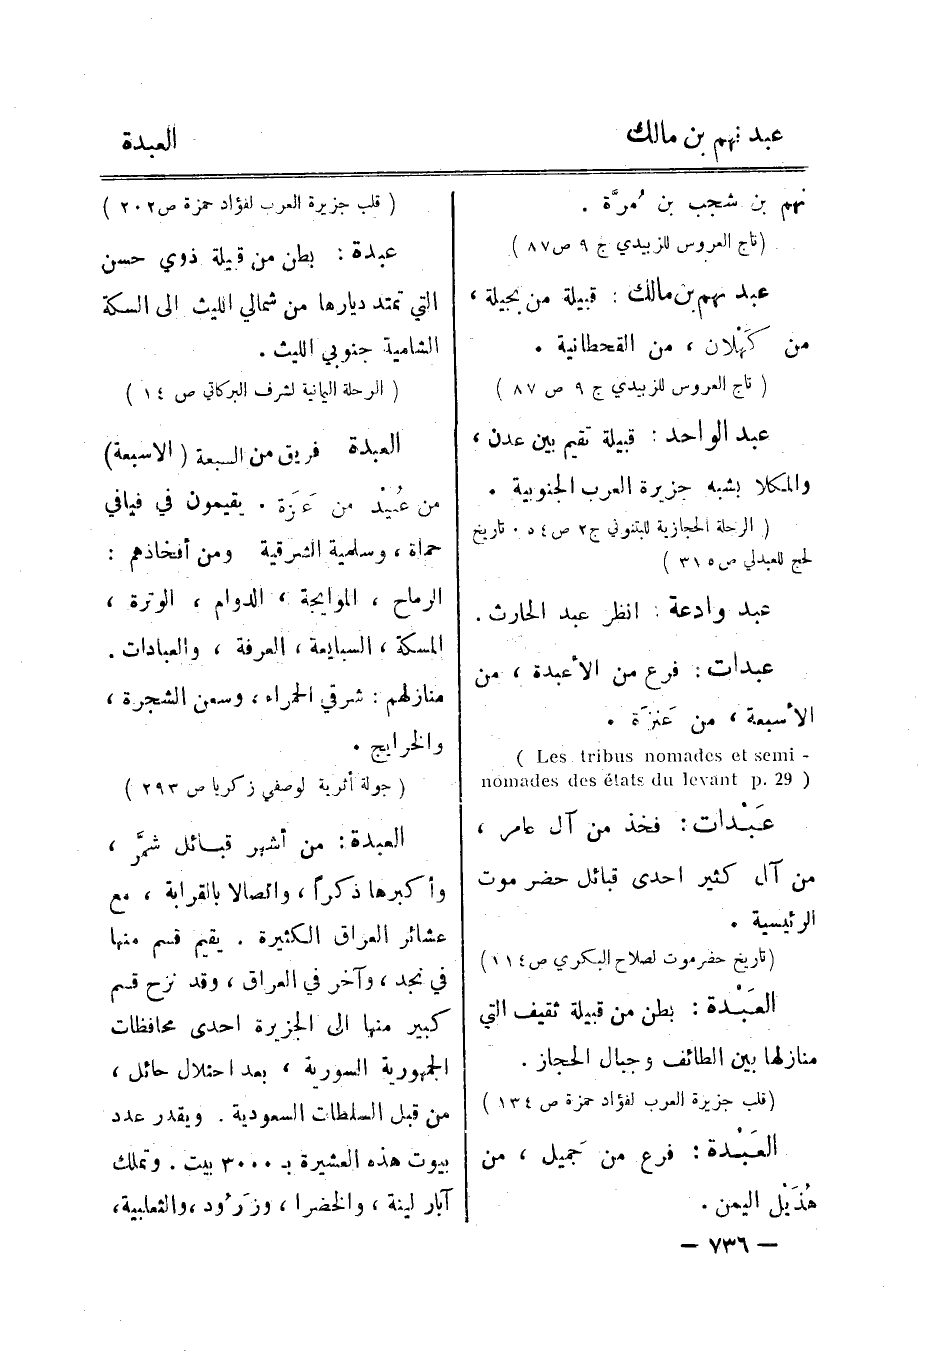 عبد نهم بن مالك
العبدة
نهم بن شجب بن مُرَّة .
(تاج العروس للزبيدي ج ٩ ص ٨٧ )
عبد نهم بن مالك : قبيلة من بجيلة ،
من كَهْلان ، من القحطانية .
( تاج العروس للزبيدي ج ٩ ص ٨٧ )
عبد الواحد : قبيلة تقيم بين عدن ،
والمكلا بشبه جزيرة العرب الجنوبية .
( الرحلة الحجازية للبتنوني ج٢ ص ٥٤ . تاريخ
لحج للعبدلي ص ٣١٥ )
عبد وادعة : انظر عبد الحارث .
عبدات : فرع من الأعبدة ، من
الأسبعة ، من عَنَزَة .
( Les tribus nomades et semi -
nomades des états du levant p. 29 )
عَبْدات : فخذ من آل عامر ،
من آل كثير احدى قبائل حضر موت
الرئيسية .
(تاريخ حضرموت لصلاح البكري ص ١١٤ )
العَبْدة : بطن من قبيلة ثقيف التي
منازلها بين الطائف وجبال الحجاز .
(قلب جزيرة العرب لفؤاد حمزة ص ١٣٤ )
العَبْدة : فرع من جميل ، من
هُذَيْل اليمن .
( قلب جزيرة العرب لفؤاد حمزة ص ٢٠٢ )
عبدة : بطن من قبيلة ذوي حسن
التي تمتد ديارها من شمالي الليث الى السكة
الشامية جنوبي الليث .
( الرحلة اليمانية لشرف البركاتي ص ١٤ )
العبدة فريق من السبعة ( الاسبعة )
من عُبَيْد من عَنَزَة . يقيمون في فيافي
حماة ، وسلمية الشرقية ومن أفخاذهم :
الرماح ، الموايجة ، الدوام ، الوترة ،
المسكة ، السبايعة ، العرفة ، والعبادات .
منازلهم : شرقي الحمراء ، وسعن الشجرة ،
والخرايج .
( جولة أثرية لوصفي زكريا ص ٢٩٣ )
العبدة : من أشهر قبائل شمَّر ،
وأكبرها ذكراً ، واتصالا بالقرابة ، مع
عشائر العراق الكثيرة . يقيم قسم منها
في نجد ، وآخر في العراق ، وقد نزح قسم
كبير منها الى الجزيرة احدى محافظات
الجمهورية السورية ، بعد احتلال حائل ،
من قبل السلطات السعودية . ويقدر عدد
بيوت هذه العشيرة بـ ٣٠٠٠ بيت . وتملك
آبار لينة ، والخضرا ، وزَرُود ، والثعلبية ،
— ٧٣٦ —